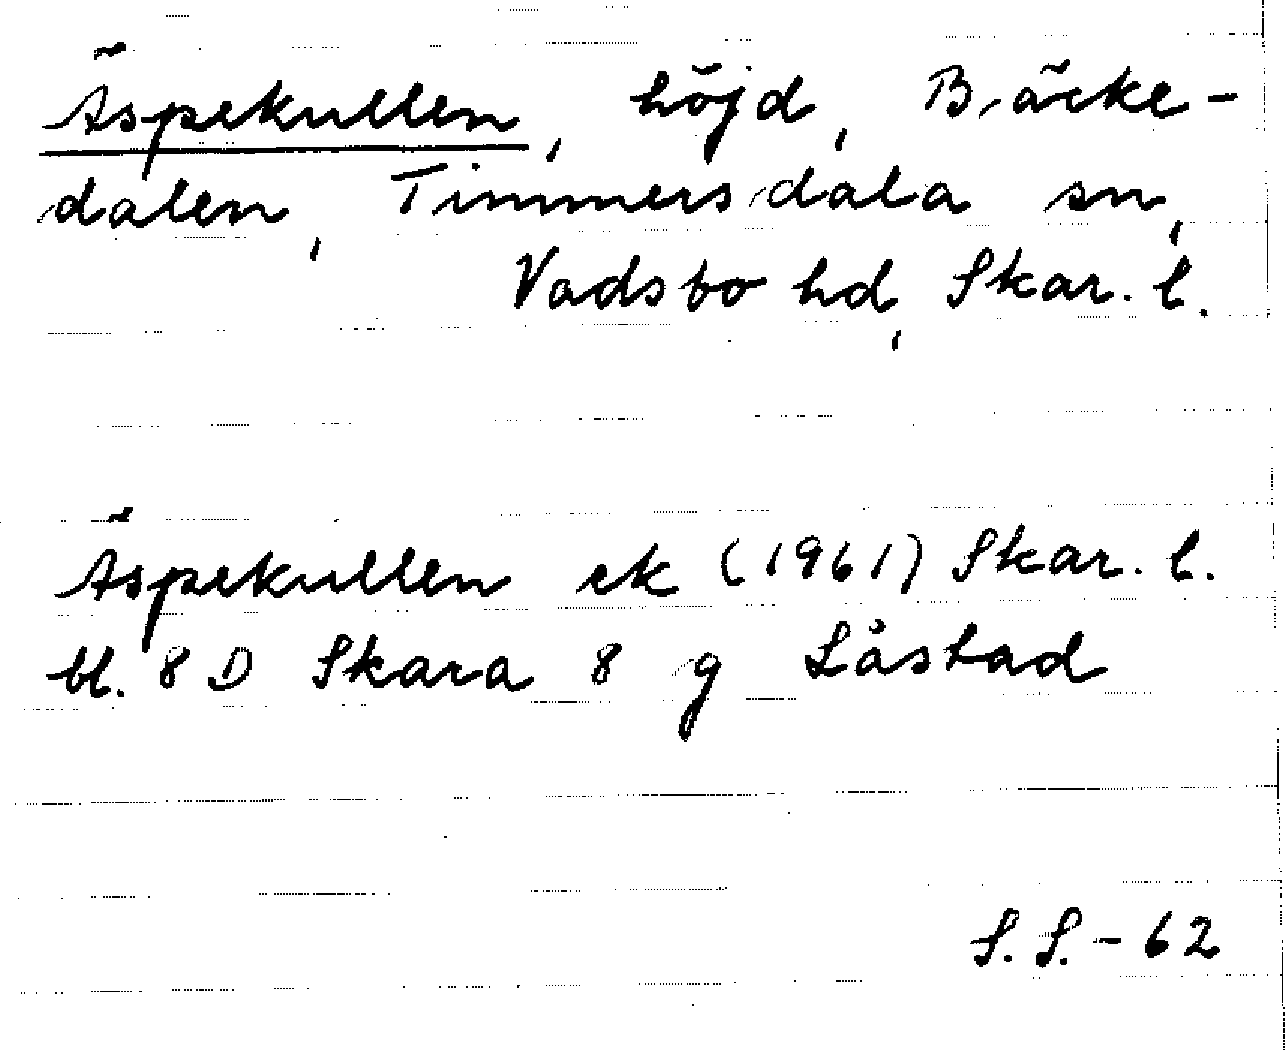 Äspekullen, höjd, Bäcke-
dalen, Timmersdala sn,
Vadsbo hd, Skar. l.
Äspekullen ek (1961) Skar. l.
bl. 8 D Skara 8 g Låstad
S.S.-62